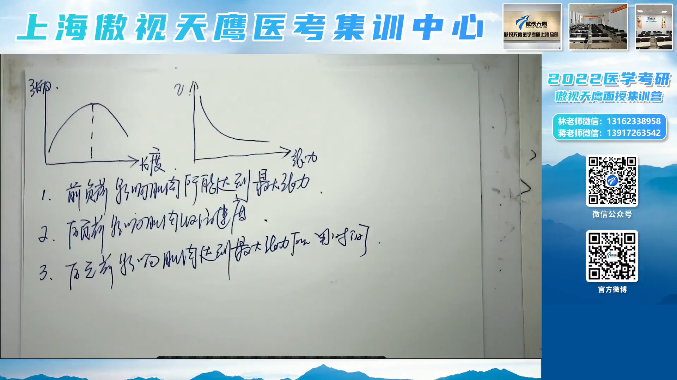 上海傲视天鹰医考集训中心
2022医学考研
傲视天鹰面授集训营
林老师微信：13162338958
蒋老师微信：13917263542
微信公众号
官方微博
张力
v
长度
张力
1. 前负荷影响肌肉所能达到最大张力.
2. 后负荷影响肌肉收缩速度.
3. 后负荷影响肌肉达到最大张力所 时间.